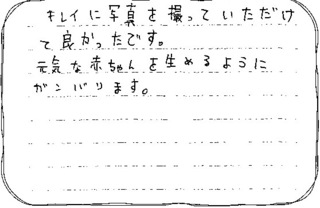 キレイに写真を撮っていただけ
て良かったです。
元気な赤ちゃんを生めるように
ガンバります。